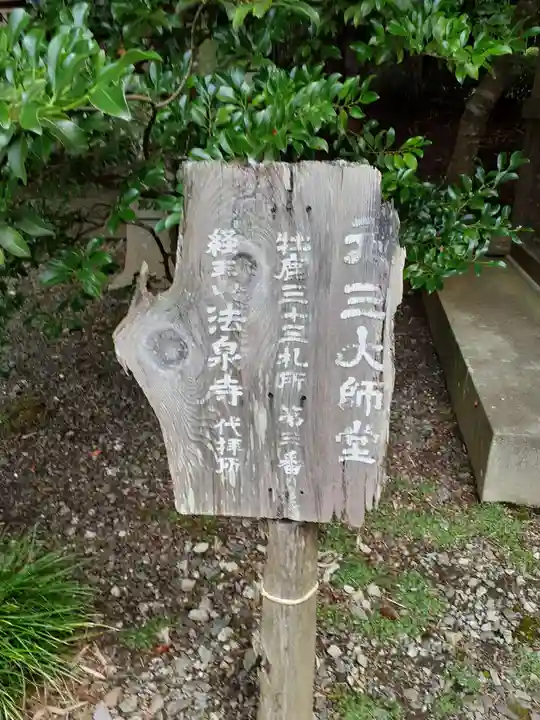 元三大師堂
牡鹿三十三札所 第三番
経王山法泉寺 代拝所